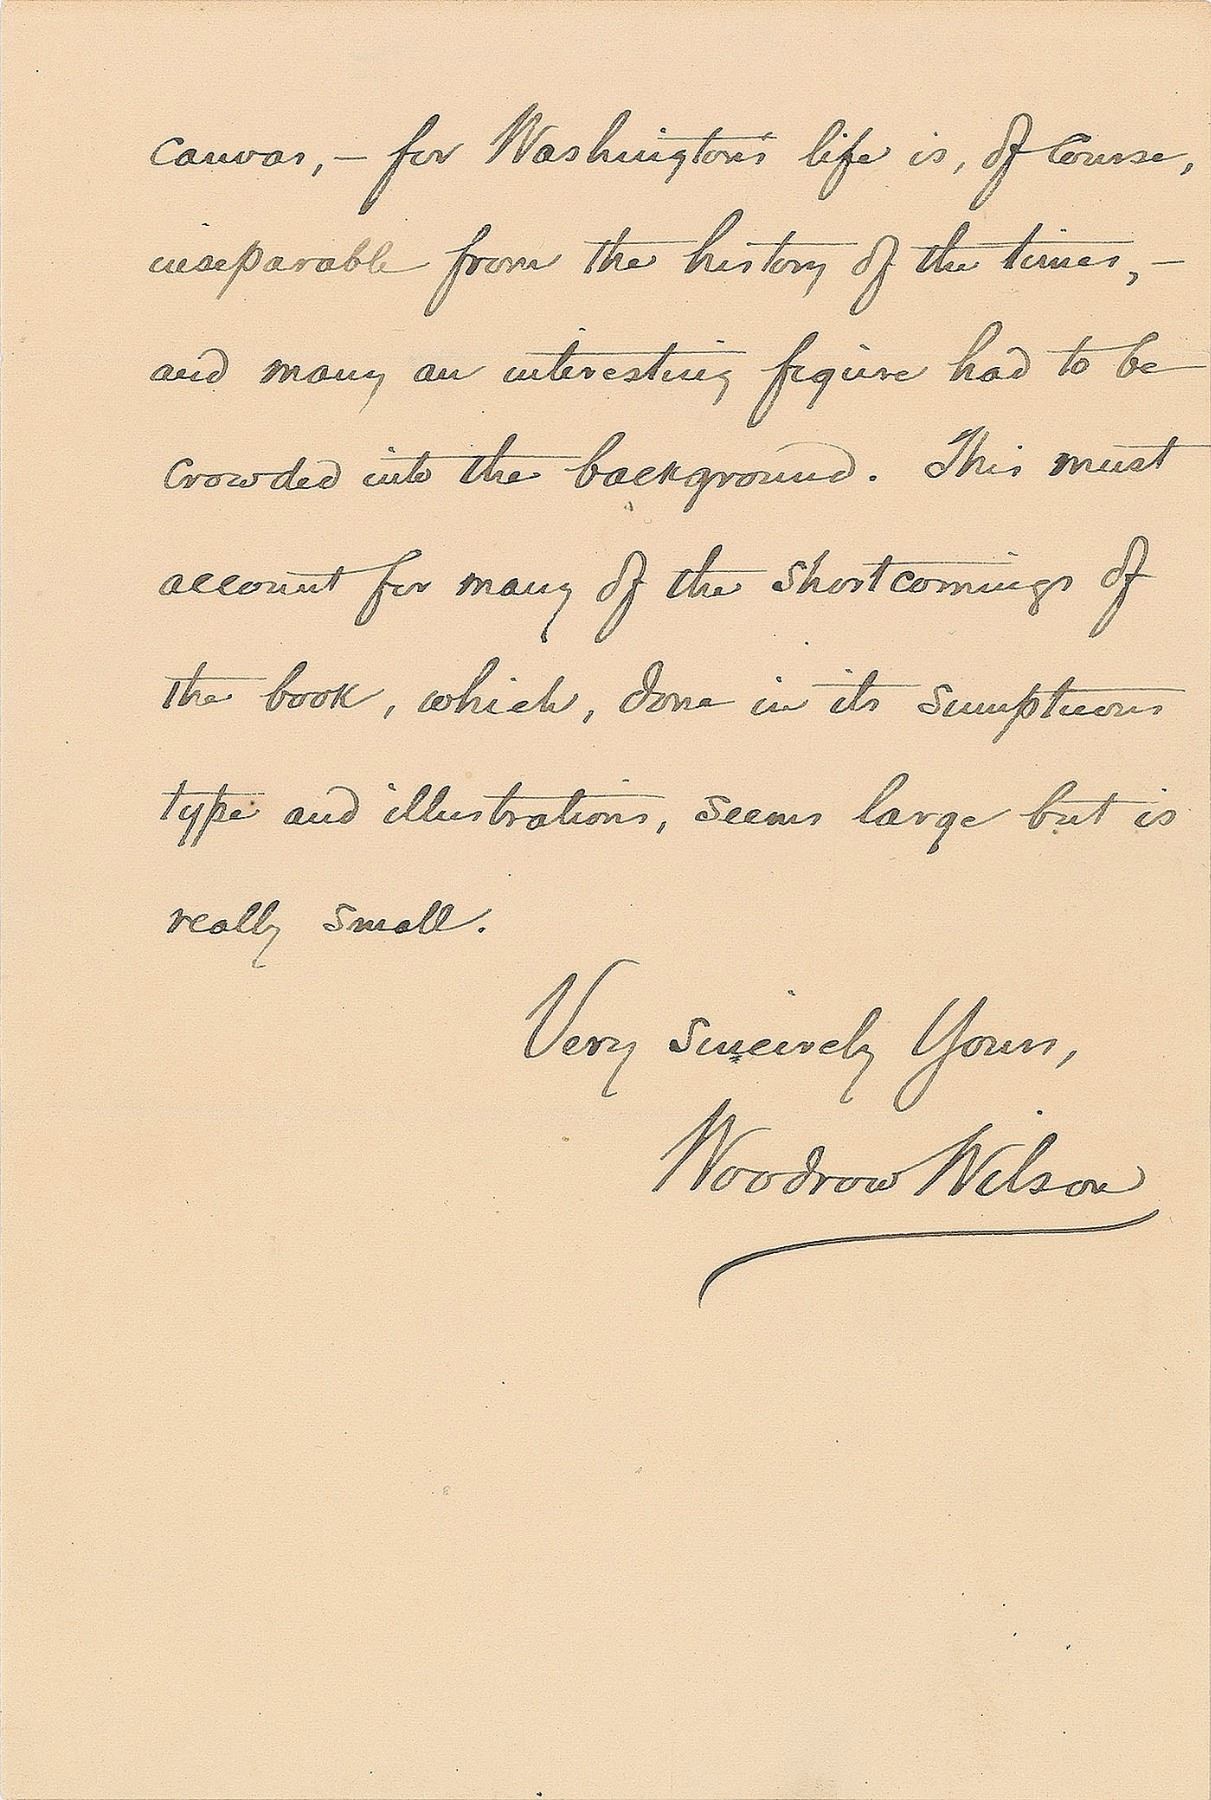 canvas, – for Washington's life is, of course,
inseparable from the history of the times, –
and many an interesting figure had to be
crowded into the background. This must
account for many of the shortcomings of
the book, which, done in its sumptuous
type and illustrations, seems large but is
really small.
Very sincerely Yours,
Woodrow Wilson